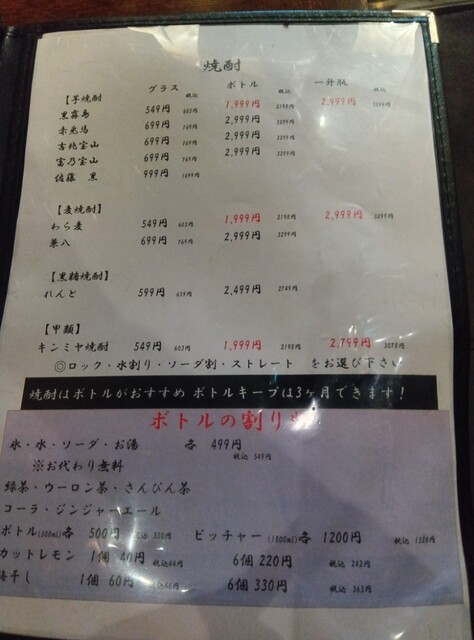 焼酎
グラス 税込 ボトル 税込 一升瓶 税込
【芋焼酎】
黒霧島 549円 603円 1,999円 2198円 2,999円 3299円
赤兎馬 699円 769円 2,999円 3299円
吉兆宝山 699円 769円 2,999円 3299円
富乃宝山 699円 769円 2,999円 3299円
佐藤 黒 999円 1099円
【麦焼酎】
わら麦 549円 603円 1,999円 2198円 2,999円 3299円
兼八 699円 769円 2,999円 3299円
【黒糖焼酎】
れんと 599円 659円 2,499円 2749円
【甲類】
キンミヤ焼酎 549円 603円 1,999円 2198円 2,799円 3078円
◎ロック・水割り・ソーダ割・ストレート をお選び下さい
焼酎はボトルがおすすめ ボトルキープは3ヶ月できます!
ボトルの割り
氷・水・ソーダ・お湯 各 499円
税込 549円
※お代わり無料
緑茶・ウーロン茶・さんぴん茶
コーラ・ジンジャーエール
ボトル(500ml)各 500円 税込 550円 ピッチャー(1800ml)各 1200円 税込 1320円
カットレモン 1個 40円 税込44円 6個 220円 税込 242円
梅干し 1個 60円 税込66円 6個 330円 税込 363円